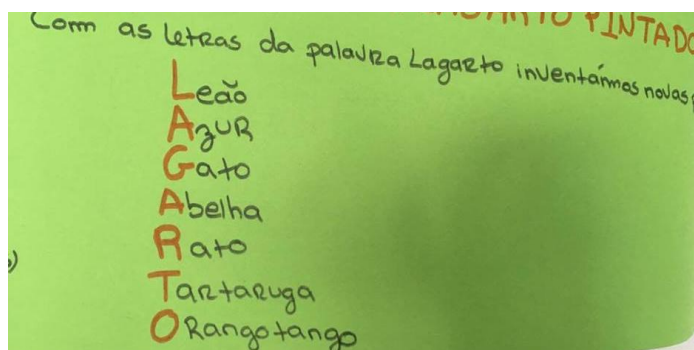 LAGARTO PINTADO
Com as letras da palavra Lagarto inventámos novas
Leão
Azur
Gato
Abelha
Rato
Tartaruga
Orangotango